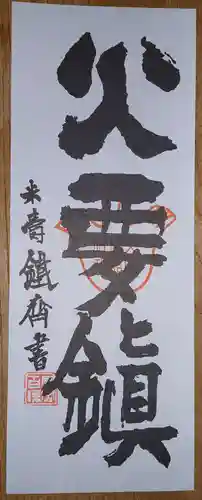 火要鎮
米壽鐵齋書